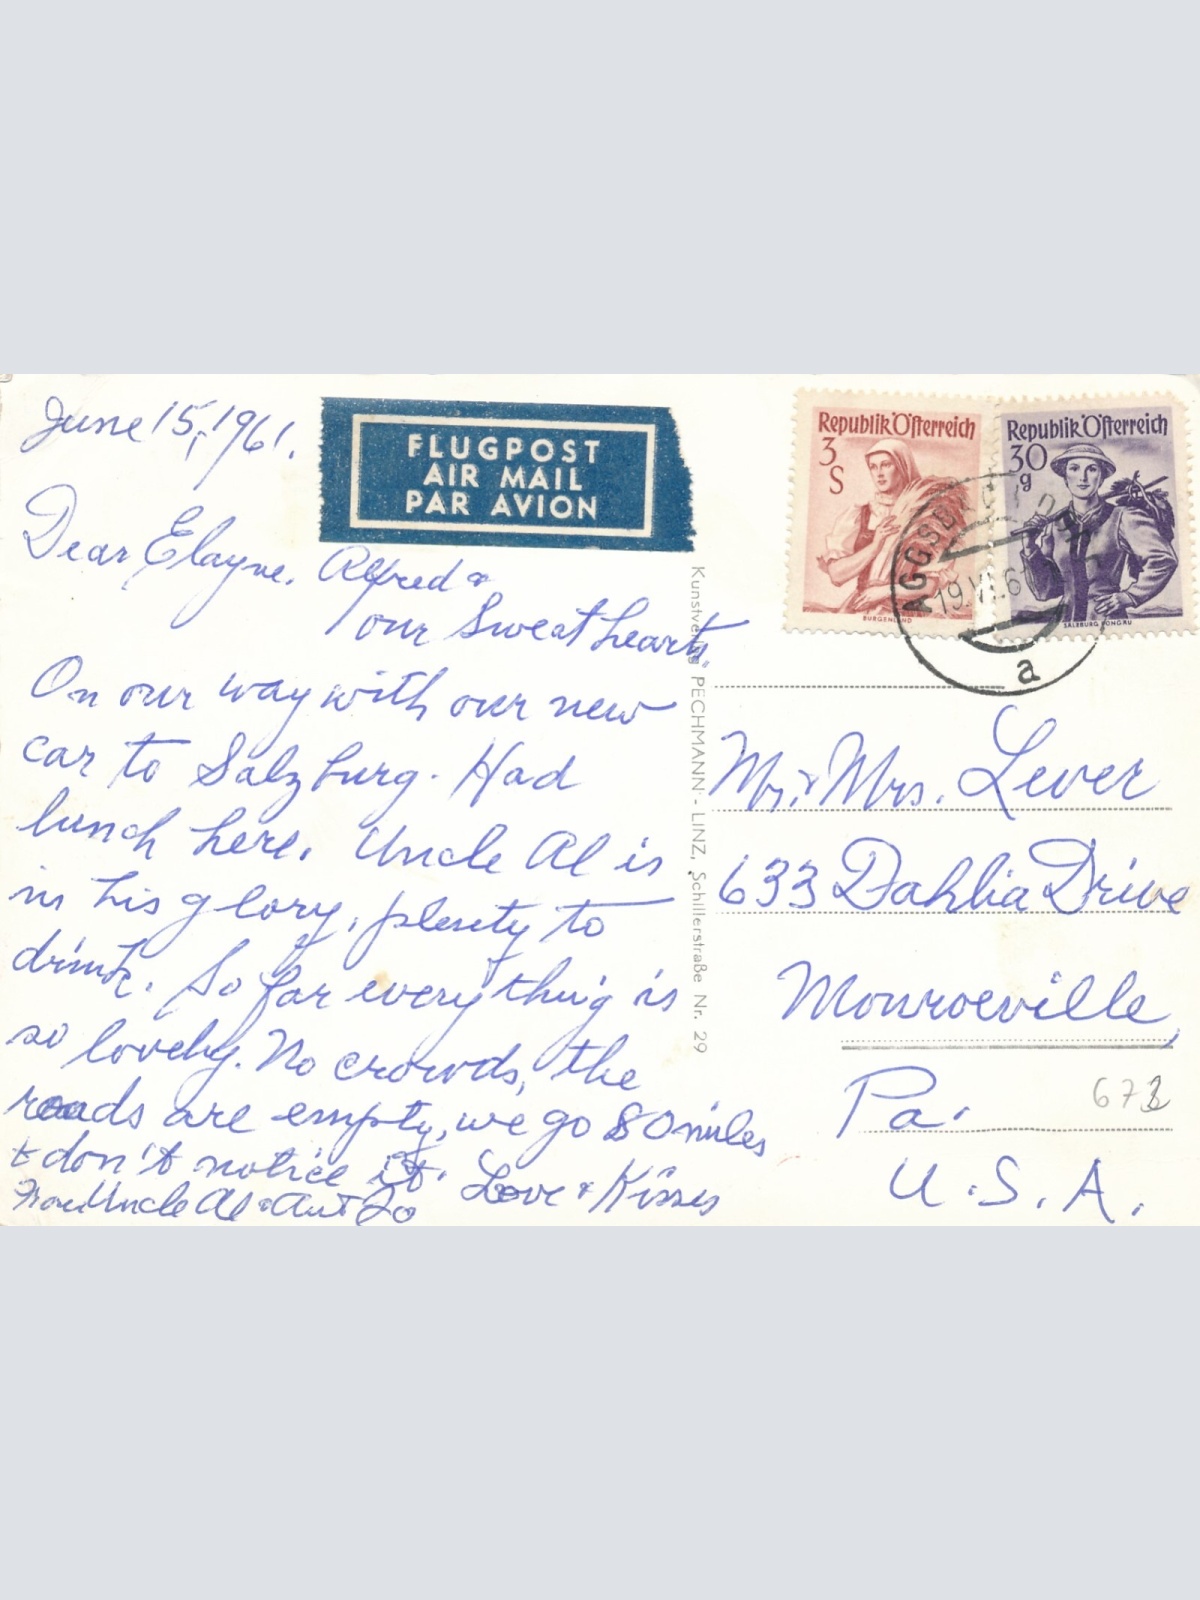 June 15, 1961.
FLUGPOST
AIR MAIL
PAR AVION
Dear Elayne, Alfred &
our Sweathearts.
On our way with our new
car to Salzburg. Had
lunch here. Uncle Al is
in his glory, plenty to
drink. So far everything is
so lovely. No crowds, the
roads are empty, we go 80 miles
& don't notice it. Love & Kisses
From Uncle Al & Aut Jo
Kunstverlag PECHMANN - LINZ, Schillerstraße Nr. 29
Republik Österreich
3
S
BURGENLAND
Republik Österreich
30
g
SALZBURG, PONGAU
19.VI.61
a
Mr. & Mrs. Lever
633 Dahlia Drive
Monroeville,
Pa.
U.S.A.